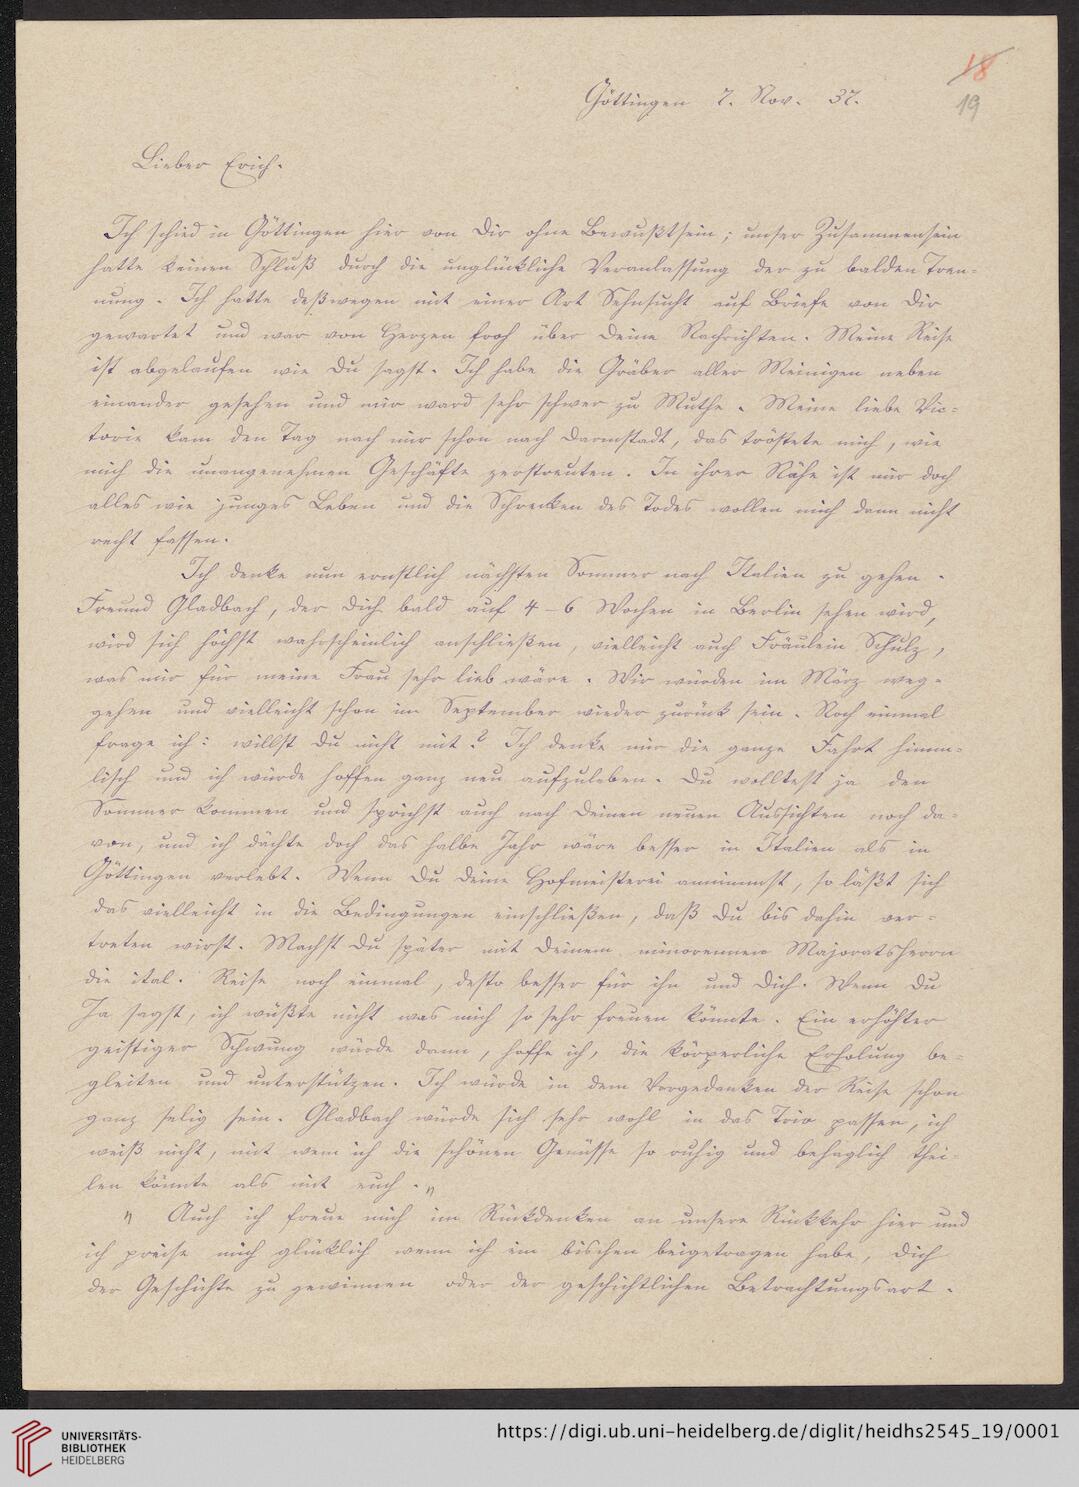 18
19
Göttingen 7. Nov. 37.
Lieber Erich.
Ich schied in Göttingen hier von Dir ohne Bewußtsein; unser Zusammensein
hatte keinen Schluß durch die unglückliche Veranlassung der zu balden Tren-
nung. Ich hatte deßwegen mit einer Art Sehnsucht auf Briefe von Dir
gewartet und war von Herzen froh über Deine Nachrichten. Meine Reise
ist abgelaufen wie Du sagst. Ich habe die Gräber aller Meinigen neben
einander gesehen und mir ward sehr schwer zu Muthe. Meine liebe Vic-
torie kam den Tag nach mir schon nach Darmstadt, das tröstete mich, wie
mich die unangenehmen Geschäfte zerstreuten. In ihrer Nähe ist mir doch
alles wie junges Leben und die Schrecken des Todes wollen mich dann nicht
recht fassen.
Ich denke nun ernstlich nächsten Sommer nach Italien zu gehen.
Freund Gladbach, der Dich bald auf 4-6 Wochen in Berlin sehen wird,
wird sich höchst wahrscheinlich anschließen, vielleicht auch Fräulein Schulz,
was mir für meine Frau sehr lieb wäre. Wir würden im März weg-
gehen und vielleicht schon im September wieder zurück sein. Noch einmal
frage ich: willst Du nicht mit? Ich denke mir die ganze Fahrt himm-
lisch und ich würde hoffen ganz neu aufzuleben. Du wolltest ja den
Sommer kommen und sprichst auch nach Deinen neuen Aussichten noch da-
von, und ich dächte doch das halbe Jahr wäre besser in Italien als in
Göttingen verlebt. Wenn Du Deine Hofmeisterei annimmst, so läßt sich
das vielleicht in die Bedingungen einschließen, daß Du bis dahin ver-
treten wirst. Machst Du später mit Deinem minorennen Majoratsherrn
die ital. Reise noch einmal, desto besser für ihn und Dich. Wenn Du
Ja sagst, ich wüßte nicht was mich so sehr freuen könnte. Ein erhöhter
geistiger Schwung würde dann, hoffe ich, die körperliche Erholung be-
gleiten und unterstützen. Ich würde in dem Vorgedanken der Reise schon
ganz selig sein. Gladbach würde sich sehr wohl in das Trio passen, ich
weiß nicht, mit wem ich die schönen Genüsse so ruhig und behaglich thei-
len könnte als mit euch."
" Auch ich freue mich im Rückdenken an unsere Rückkehr hier und
ich preise mich glücklich wenn ich ein bischen beigetragen habe, Dich
der Geschichte zu gewinnen oder der geschichtlichen Betrachtungsart.
UNIVERSITÄTS-
BIBLIOTHEK
HEIDELBERG
https://digi.ub.uni-heidelberg.de/diglit/heidhs2545_19/0001